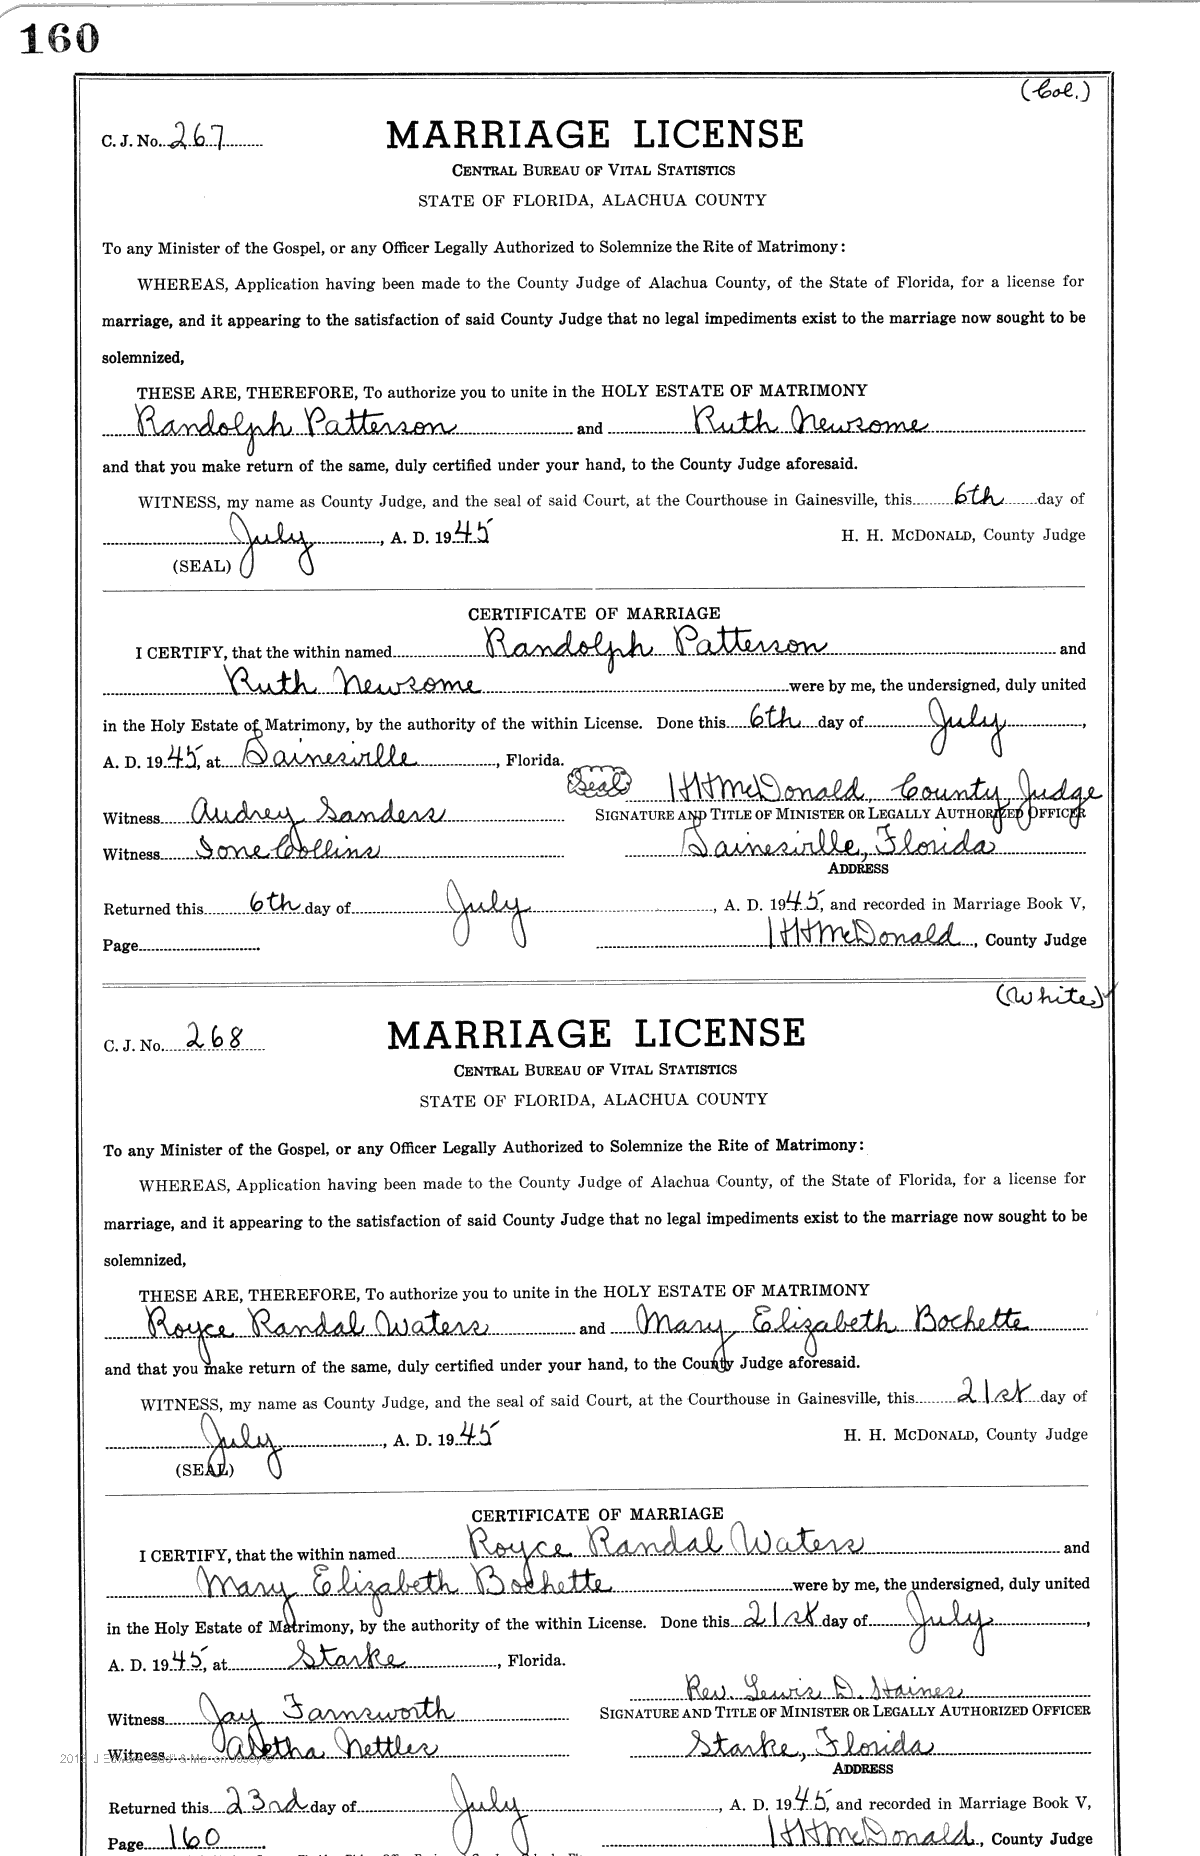 160
(Col.)
C. J. No. 267 MARRIAGE LICENSE
CENTRAL BUREAU OF VITAL STATISTICS
STATE OF FLORIDA, ALACHUA COUNTY
To any Minister of the Gospel, or any Officer Legally Authorized to Solemnize the Rite of Matrimony:
WHEREAS, Application having been made to the County Judge of Alachua County, of the State of Florida, for a license for
marriage, and it appearing to the satisfaction of said County Judge that no legal impediments exist to the marriage now sought to be
solemnized,
THESE ARE, THEREFORE, To authorize you to unite in the HOLY ESTATE OF MATRIMONY
Randolph Patterson and Ruth Newsome
and that you make return of the same, duly certified under your hand, to the County Judge aforesaid.
WITNESS, my name as County Judge, and the seal of said Court, at the Courthouse in Gainesville, this 6th day of
July, A. D. 1945 H. H. MCDONALD, County Judge
(SEAL)
CERTIFICATE OF MARRIAGE
I CERTIFY, that the within named Randolph Patterson and
Ruth Newsome were by me, the undersigned, duly united
in the Holy Estate of Matrimony, by the authority of the within License. Done this 6th day of July,
A. D. 1945, at Gainesville, Florida.
Seal HH McDonald, County Judge
Witness Audrey Sanders SIGNATURE AND TITLE OF MINISTER OR LEGALLY AUTHORIZED OFFICER
Witness Ione Collins Gainesville, Florida
ADDRESS
Returned this 6th day of July, A. D. 1945, and recorded in Marriage Book V,
Page HH McDonald, County Judge
(White)
C. J. No. 268 MARRIAGE LICENSE
CENTRAL BUREAU OF VITAL STATISTICS
STATE OF FLORIDA, ALACHUA COUNTY
To any Minister of the Gospel, or any Officer Legally Authorized to Solemnize the Rite of Matrimony:
WHEREAS, Application having been made to the County Judge of Alachua County, of the State of Florida, for a license for
marriage, and it appearing to the satisfaction of said County Judge that no legal impediments exist to the marriage now sought to be
solemnized,
THESE ARE, THEREFORE, To authorize you to unite in the HOLY ESTATE OF MATRIMONY
Royce Randal Waters and Mary Elizabeth Bochette
and that you make return of the same, duly certified under your hand, to the County Judge aforesaid.
WITNESS, my name as County Judge, and the seal of said Court, at the Courthouse in Gainesville, this 21st day of
July, A. D. 1945 H. H. MCDONALD, County Judge
(SEAL)
CERTIFICATE OF MARRIAGE
I CERTIFY, that the within named Royce Randal Waters and
Mary Elizabeth Bochette were by me, the undersigned, duly united
in the Holy Estate of Matrimony, by the authority of the within License. Done this 21st day of July,
A. D. 1945, at Starke, Florida.
Rev. Lewis D. Haines
Witness Jay Farnsworth SIGNATURE AND TITLE OF MINISTER OR LEGALLY AUTHORIZED OFFICER
Witness Aletha Nettles Starke, Florida
ADDRESS
Returned this 23rd day of July, A. D. 1945, and recorded in Marriage Book V,
Page 160 HH McDonald, County Judge